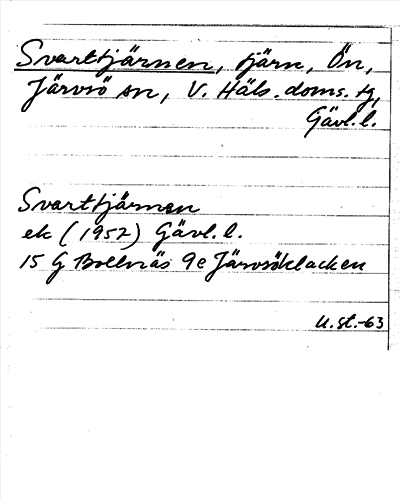 Svarttjärnen, tjärn, Ön,
Järvsö sn, V. Häls. doms. tg,
Gävl. l.
Svarttjärnen
ek (1957) Gävl. l.
15 G Bollnäs 9e Järvsöklacken
U. st. -63